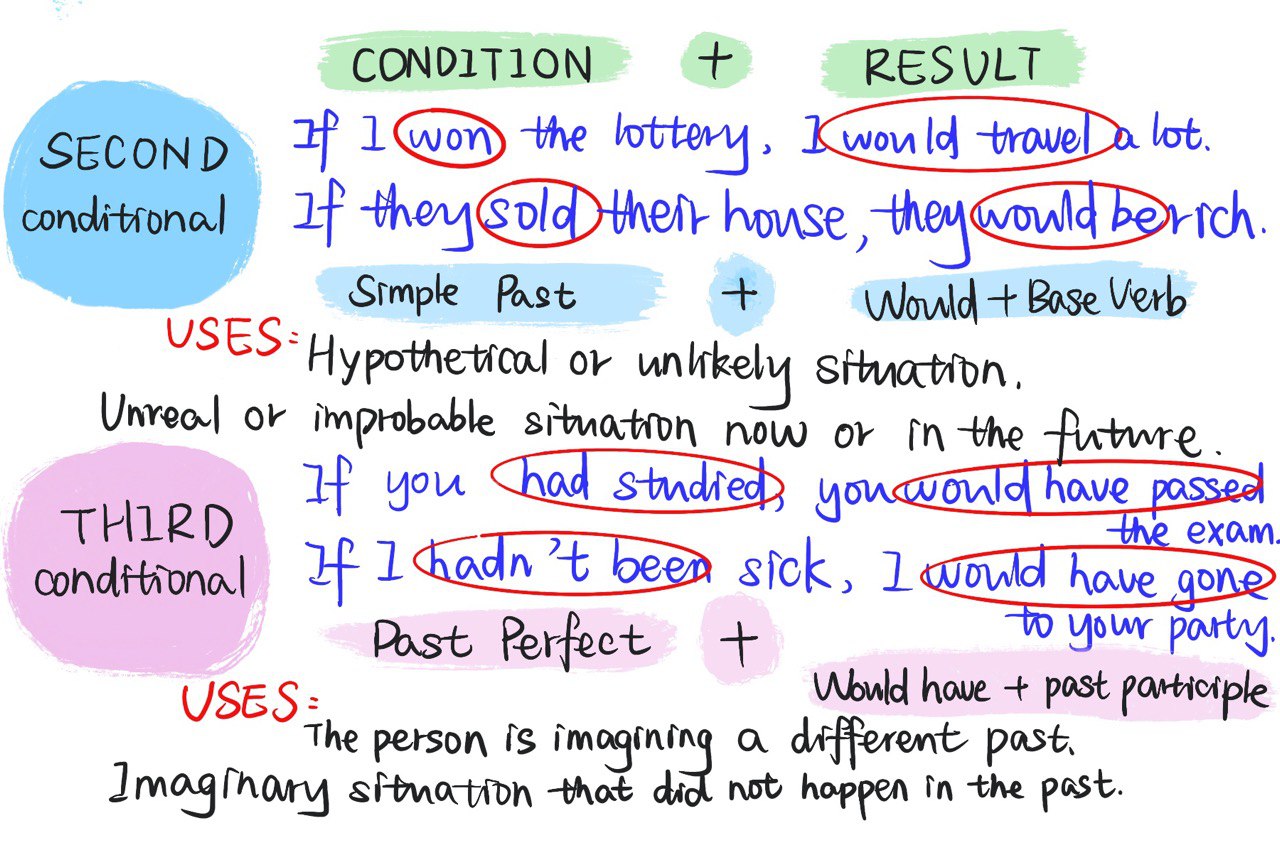 CONDITION + RESULT
SECOND
conditional
If I won the lottery, I would travel a lot.
If they sold their house, they would be rich.
Simple Past + Would + Base Verb
USES:
Hypothetical or unlikely situation.
Unreal or improbable situation now or in the future.
THIRD
conditional
If you had studied, you would have passed
the exam.
If I hadn't been sick, I would have gone
to your party.
Past Perfect +
Would have + past participle
USES:
The person is imagining a different past.
Imaginary situation that did not happen in the past.